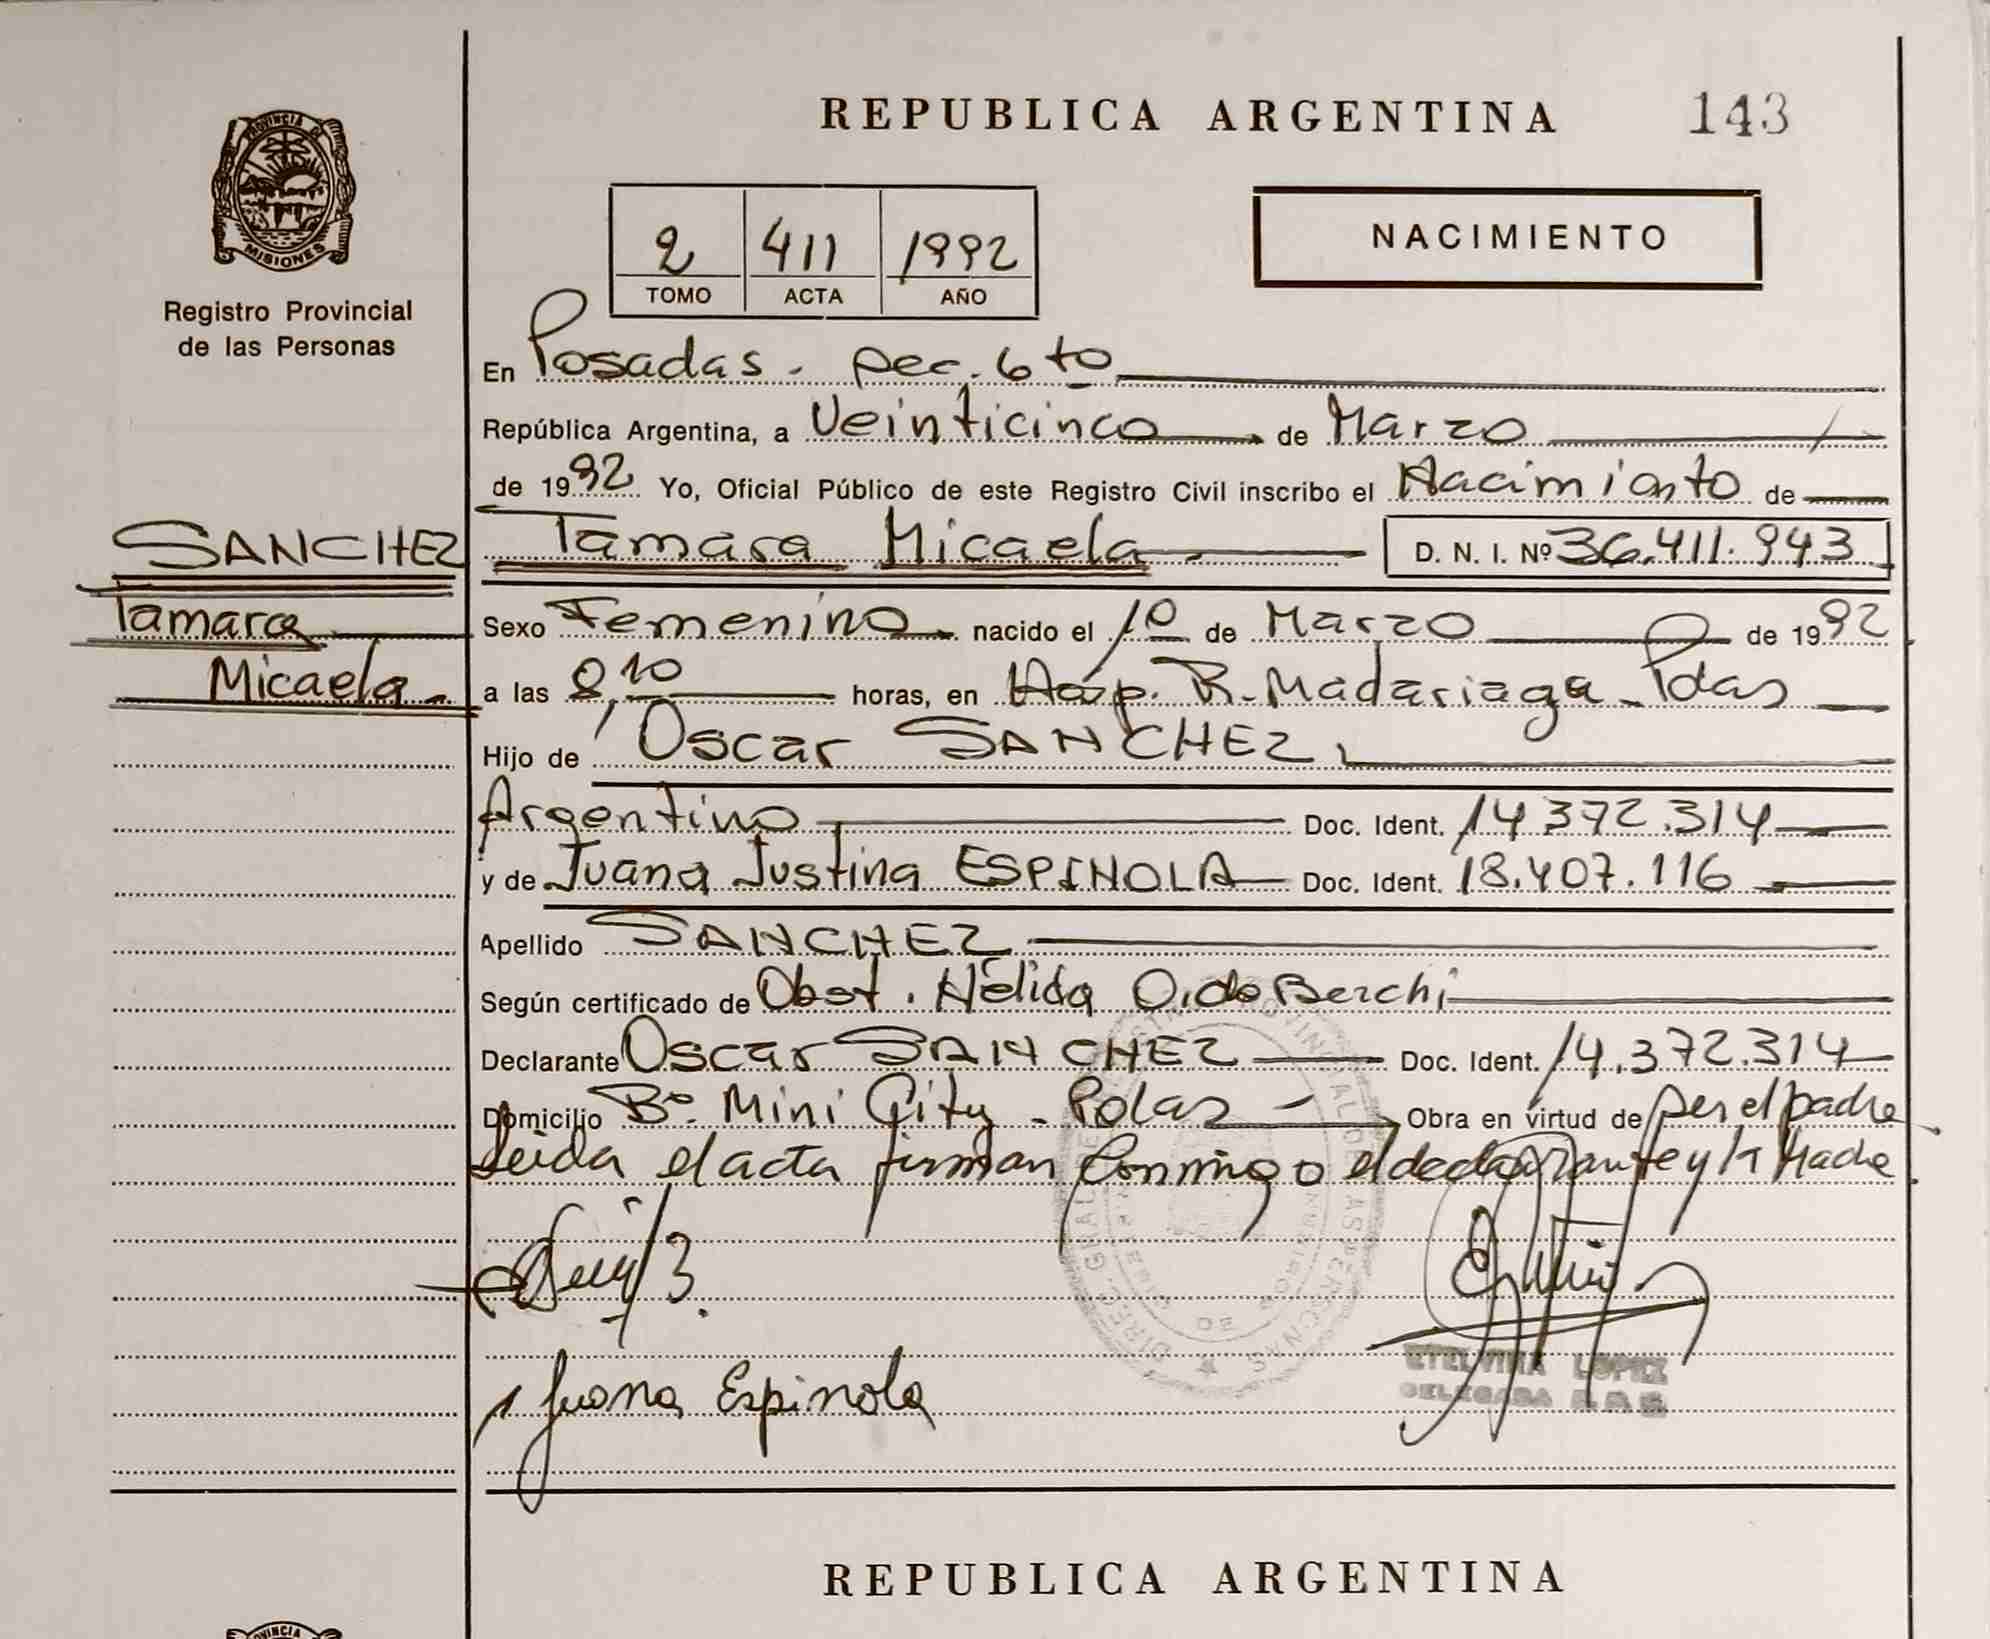 REPUBLICA ARGENTINA 143
PROVINCIA DE
MISIONES
Registro Provincial
de las Personas
2 411 1992
TOMO ACTA AÑO
NACIMIENTO
En Posadas. Secc. 6to
República Argentina, a Veinticinco de Marzo
de 1992 Yo, Oficial Público de este Registro Civil inscribo el Nacimiento de
SANCHEZ Tamara Micaela D. N. I. Nº 36.411.943
Tamara
Sexo Femenino nacido el 10 de Marzo de 1992
Micaela
a las 8,10 horas, en Hosp. R. Madariaga - Pdas
Hijo de Oscar SANCHEZ
Argentino Doc. Ident. 14.372.314
y de Juana Justina ESPINOLA Doc. Ident. 18.407.116
Apellido SANCHEZ
Según certificado de Obst. Nélida O. de Berchi
Declarante Oscar SANCHEZ Doc. Ident. 14.372.314
Domicilio Bº. Mini City - Pdas - Obra en virtud de ser el padre
Leida el acta firman conmigo el declarante y la Madre
Juana Espinola
ETELVINA LOPEZ
DELEGADA
REPUBLICA ARGENTINA
PROVINCIA